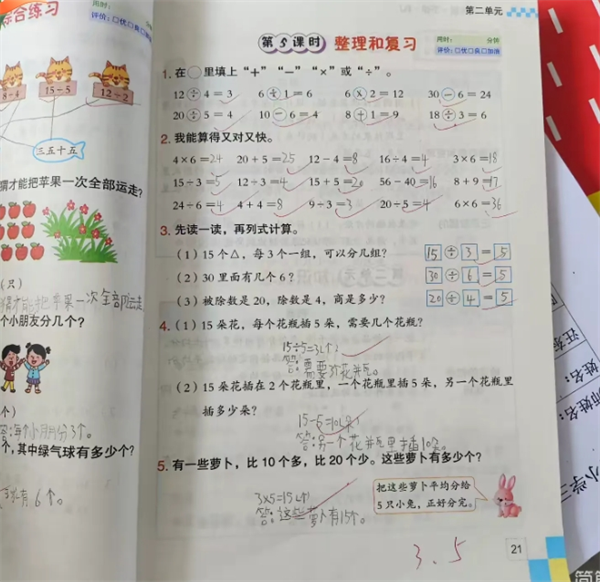 综合练习
8-4 15-5 12-2
三五十五
猜才能把苹果一次全部运走？
（只）
猜才能把苹果一次全部运走
个小朋友分几个？
（个）
答:每个小朋友分3个。
个，其中绿气球有多少个？
球有6个。
第二单元
第5课时 整理和复习
用时： 分钟
评价：□优□良□加油
1. 在○里填上“+”“-”“×”或“÷”。
12÷4=3 6÷1=6 6×2=12 30-6=24
20÷5=4 10-6=4 8+1=9 18÷3=6
2. 我能算得又对又快。
4×6=24 20+5=25 12-4=8 16÷4=4 3×6=18
15÷3=5 12÷3=4 15+5=20 56-40=16 8+9=17
24÷6=4 4+4=8 9÷3=3 20÷5=4 6×6=36
3. 先读一读，再列式计算。
（1）15个△，每3个一组，可以分几组？ 15÷3=5
（2）30里面有几个6？ 30÷6=5
（3）被除数是20，除数是4，商是多少？ 20÷4=5
4.（1）15朵花，每个花瓶插5朵，需要几个花瓶？
15÷5=3(个)
答:需要3个花瓶。
（2）15朵花插在2个花瓶里，一个花瓶里插5朵，另一个花瓶里
插多少朵？
15-5=10(朵)
答:另一个花瓶里插10朵。
5. 有一些萝卜，比10个多，比20个少。这些萝卜有多少个？
3×5=15(个)
答:这些萝卜有15个。
把这些萝卜平均分给
5只小兔，正好分完。
3.5
21
姓名：
小学三